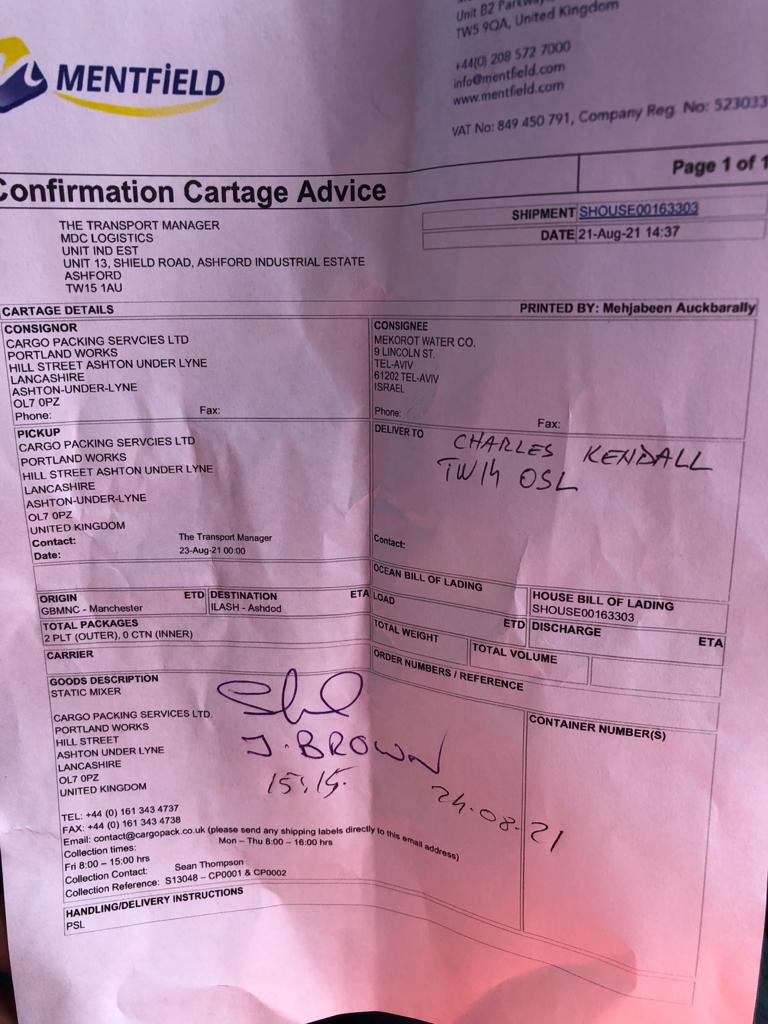 MENTFiELD
Unit B2 Parkway
TW5 9QA, United Kingdom
+44(0) 208 572 7000
info@mentfield.com
www.mentfield.com
VAT No: 849 450 791, Company Reg. No: 523033
Page 1 of 1
Confirmation Cartage Advice
SHIPMENT SHOUSE00163303
DATE 21-Aug-21 14:37
THE TRANSPORT MANAGER
MDC LOGISTICS
UNIT IND EST
UNIT 13, SHIELD ROAD, ASHFORD INDUSTRIAL ESTATE
ASHFORD
TW15 1AU
CARTAGE DETAILS
PRINTED BY: Mehjabeen Auckbarally
CONSIGNOR
CARGO PACKING SERVCIES LTD
PORTLAND WORKS
HILL STREET ASHTON UNDER LYNE
LANCASHIRE
ASHTON-UNDER-LYNE
OL7 0PZ
Phone: Fax:
CONSIGNEE
MEKOROT WATER CO.
9 LINCOLN ST.
TEL-AVIV
61202 TEL-AVIV
ISRAEL
Phone: Fax:
PICKUP
CARGO PACKING SERVCIES LTD
PORTLAND WORKS
HILL STREET ASHTON UNDER LYNE
LANCASHIRE
ASHTON-UNDER-LYNE
OL7 0PZ
UNITED KINGDOM
Contact: The Transport Manager
Date: 23-Aug-21 00:00
DELIVER TO
CHARLES KENDALL
TW14 OSL
Contact:
ORIGIN ETD
GBMNC - Manchester
DESTINATION ETA
ILASH - Ashdod
OCEAN BILL OF LADING
HOUSE BILL OF LADING
SHOUSE00163303
LOAD ETD
DISCHARGE ETA
TOTAL PACKAGES
2 PLT (OUTER), 0 CTN (INNER)
TOTAL WEIGHT
TOTAL VOLUME
CARRIER
ORDER NUMBERS / REFERENCE
GOODS DESCRIPTION
STATIC MIXER
CARGO PACKING SERVICES LTD,
PORTLAND WORKS
HILL STREET
ASHTON UNDER LYNE
LANCASHIRE
OL7 0PZ
UNITED KINGDOM
J. BROWN
15:15.
24.08.21
CONTAINER NUMBER(S)
TEL: +44 (0) 161 343 4737
FAX: +44 (0) 161 343 4738
Email: contact@cargopack.co.uk (please send any shipping labels directly to this email address)
Collection times: Mon – Thu 8:00 – 16:00 hrs
Fri 8:00 – 15:00 hrs
Collection Contact: Sean Thompson
Collection Reference: S13048 – CP0001 & CP0002
HANDLING/DELIVERY INSTRUCTIONS
PSL